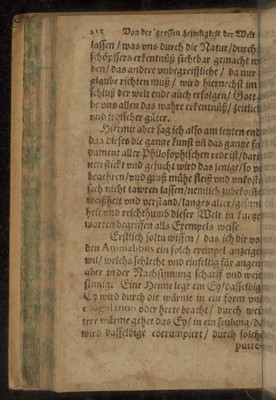 212 Von der grossen heimligkeit der Welt
lassen / was uns durch die Natur / durch
schöpffers erkentnüß sichtbar gemacht w
den / das andere unbegreifliche / da nur
glaube richten muß / wird hiernechst im
schluß der welt ende auch erfolgen / Gott
be uns allen das wahre erkentnüß / zeitlich
und irdischer güter.
Hiermit aber sag ich also am letzten end
das dieses die gantze kunst uñ das gantze fu
dament aller Philosophischen rede ist / dari
nen stickt und gesucht wird das jenige / so vi
begehren / und groß mühe fleiß und unkost
sich nicht tawren lassen / nemlich
weißheit und verstand / langes alter / gesund
heit und reichthumb dieser Welt in kurtze
worten begriffen als Exempels weise
Erstlich soltu wissen / das ich dir vo
den Animalibus ein solch exempel anzeigen
wil / welchs schlecht und einfeltig für augen
aber in der Nachsinnung scharff und weit
sinnig. Eine Henne legt ein Ey / dasselbig
Ey wird durch die wärme in ein form und
coagulation oder herte bracht / durch wei
tere wärme gehet das Ey / in ein feulung / da
wird dasselbige corrumpiert / durch solche
putre-